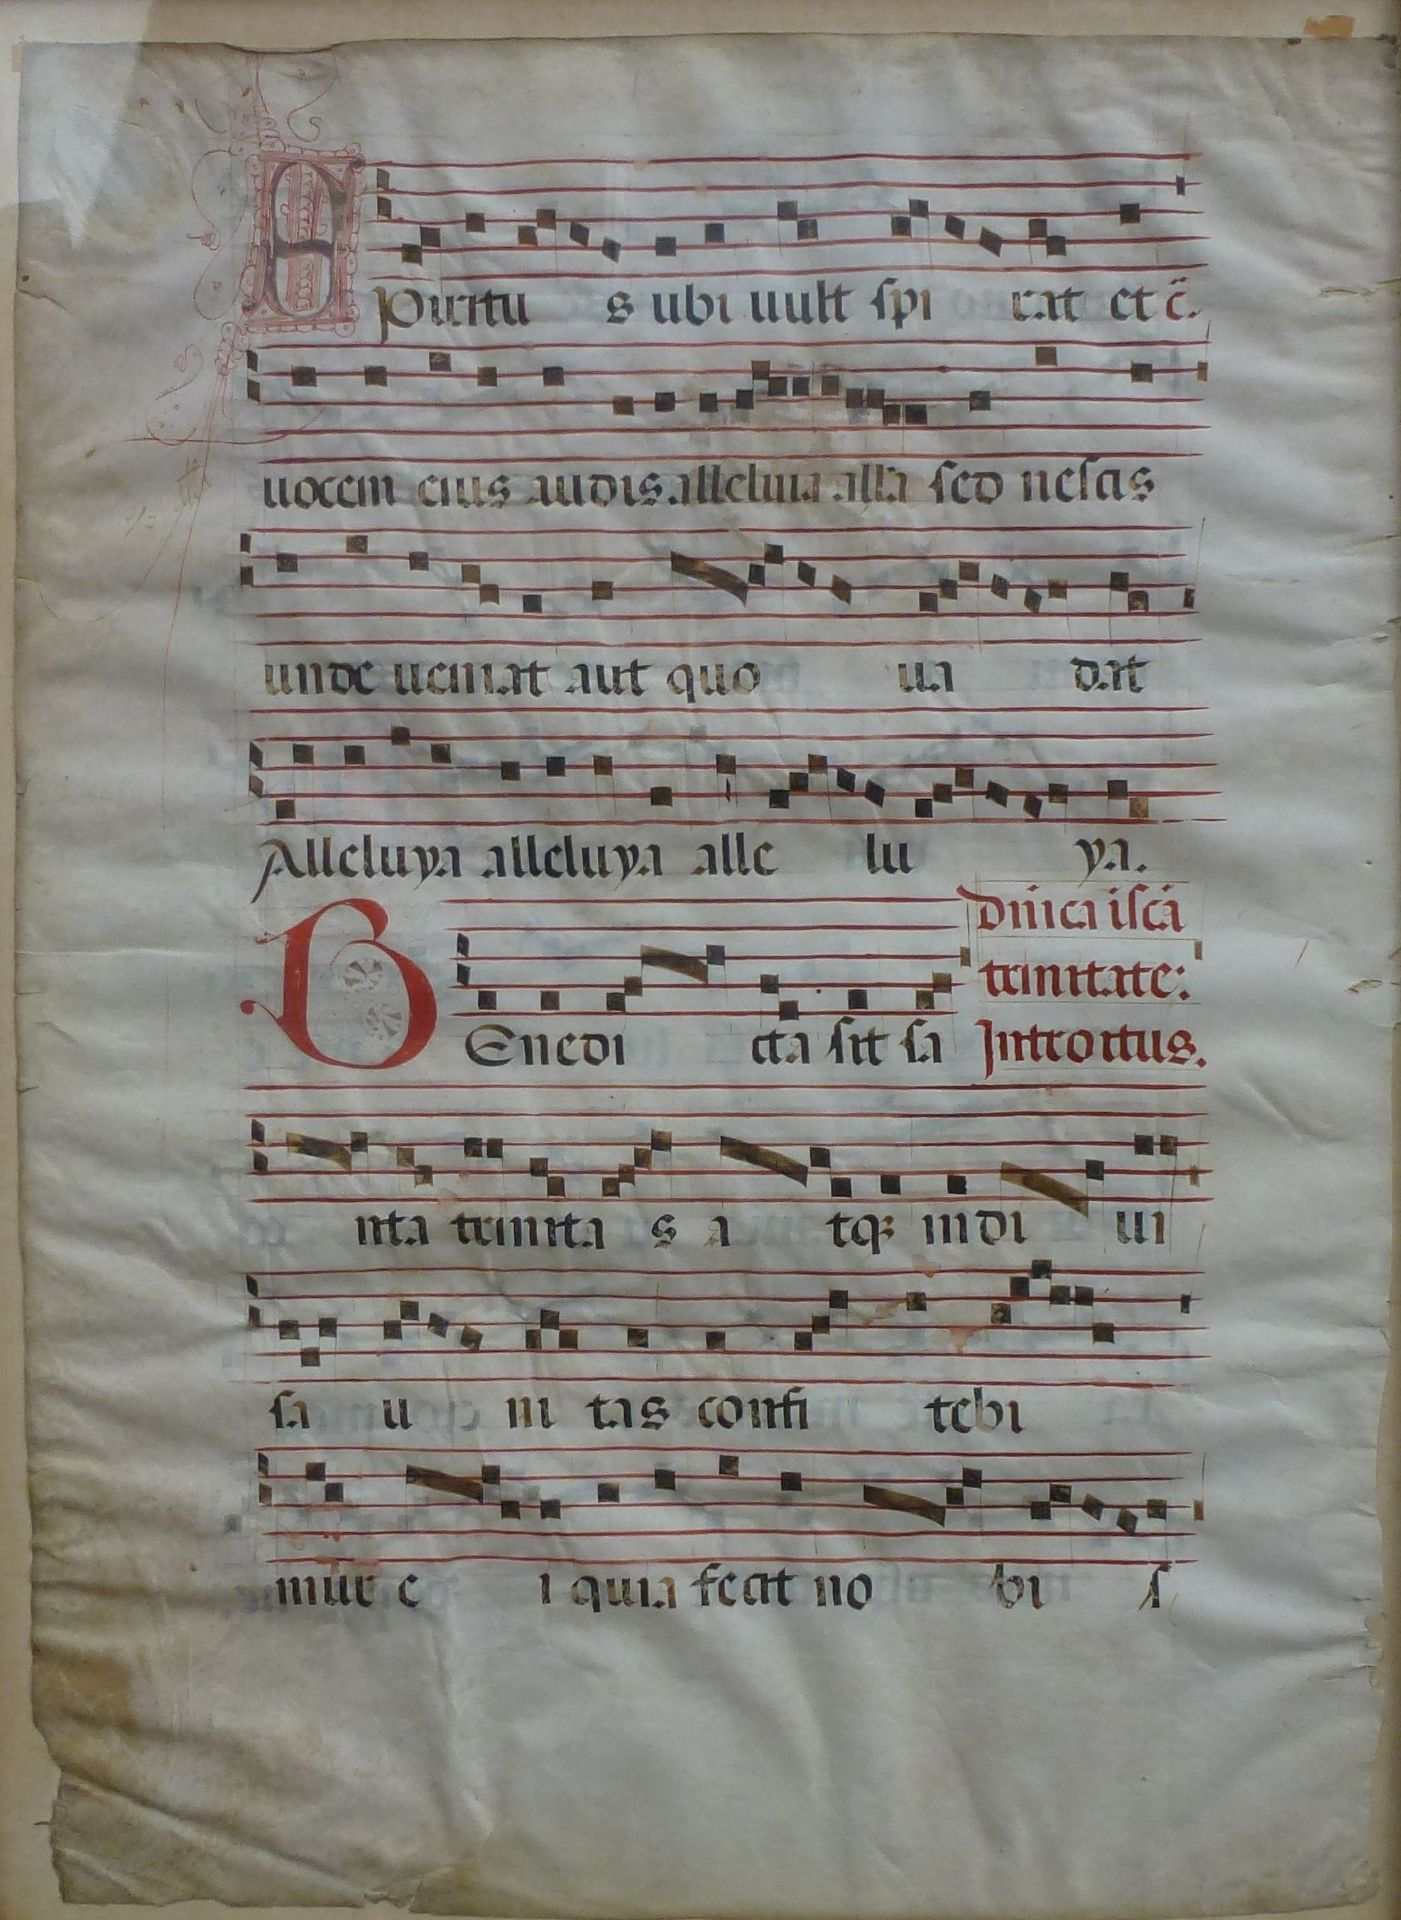 SPiritu s ubi uult spi rat et c̄.
uocem eius audis. alleluia alla sed nescis
unde ueniat aut quo ua dat
Alleluya alleluya alle lu ya.
BEnedi cta sit sa
dn̄ica i sc̄a
trinitate:
Introitus.
nta trinita s a tqꝫ indi ui
sa u ni tas confi tebi
mur e i quia fecit no bi s